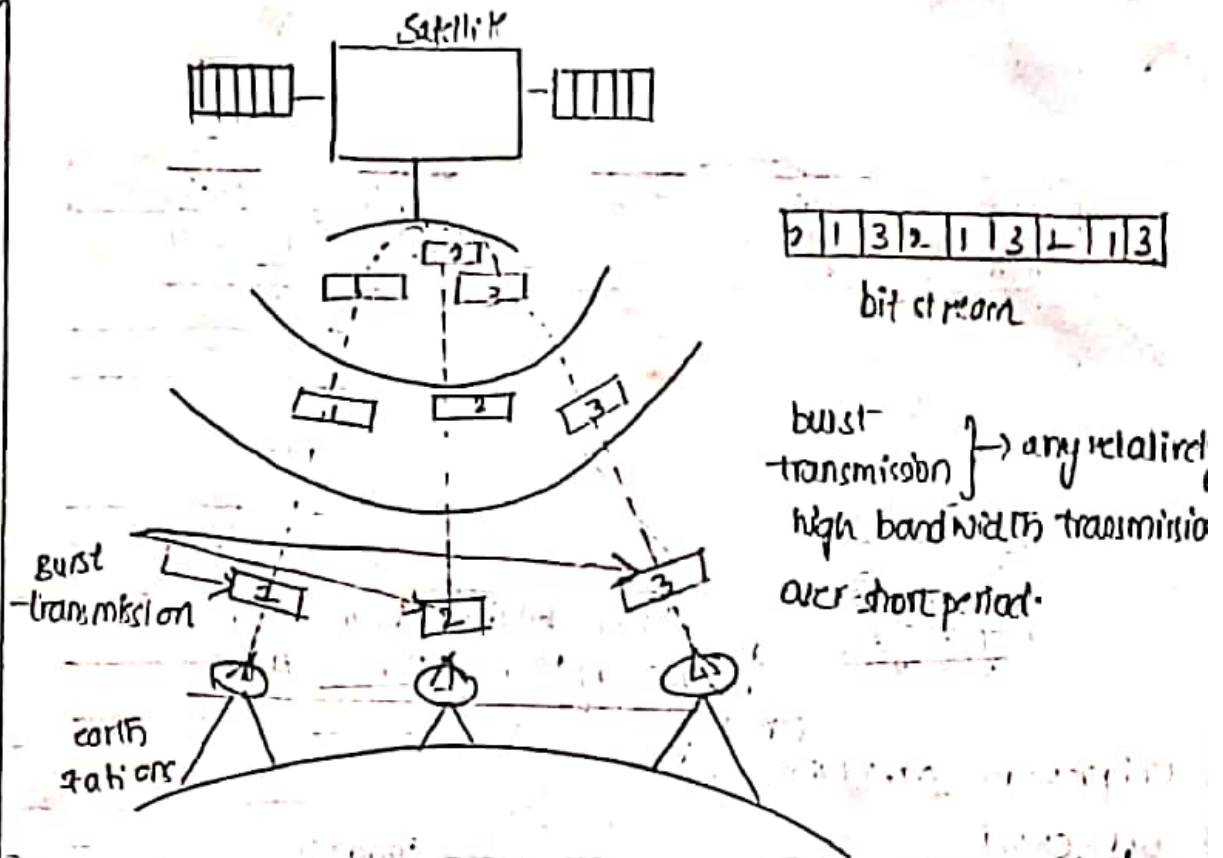 Satellite
2 1 3 2 1 3 2 1 3
bit stream
2
1 3
1 2 3
burst
transmission } → any relatively
high bandwidth transmissio
over short period.
Burst
transmission
1 2 3
earth
stations